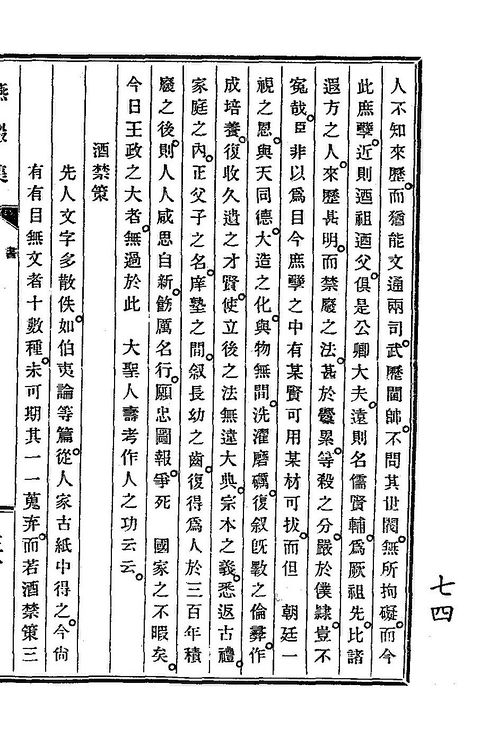 人不知來歷而猶能文通兩司武歷閫帥不問其世閥無所拘礙而今
此庶孼近則迺祖迺父俱是公卿大夫遠則名儒賢輔爲厥祖先比諸
遐方之人來歷甚明而禁廢之法甚於釁累等殺之分嚴於僕隷豈不
寃哉臣非以爲目今庶孼之中有某賢可用某材可拔而但 朝廷一
視之恩與天同德大造之化與物無間洗濯磨礪復叙旣斁之倫彛作
成培養復收久遺之才賢使立後之法無違大典宗本之義悉返古禮
家庭之內正父子之名庠塾之間叙長幼之齒復得爲人於三百年積
廢之後則人人咸思自新飭厲名行願忠圖報爭死 國家之不暇矣
今日王政之大者無過於此 大聖人壽考作人之功云云
酒禁策
先人文字多散佚如伯夷論等篇從人家古紙中得之今尙
有有目無文者十數種未可期其一一蒐弆而若酒禁策三
燕巖集
書
七四